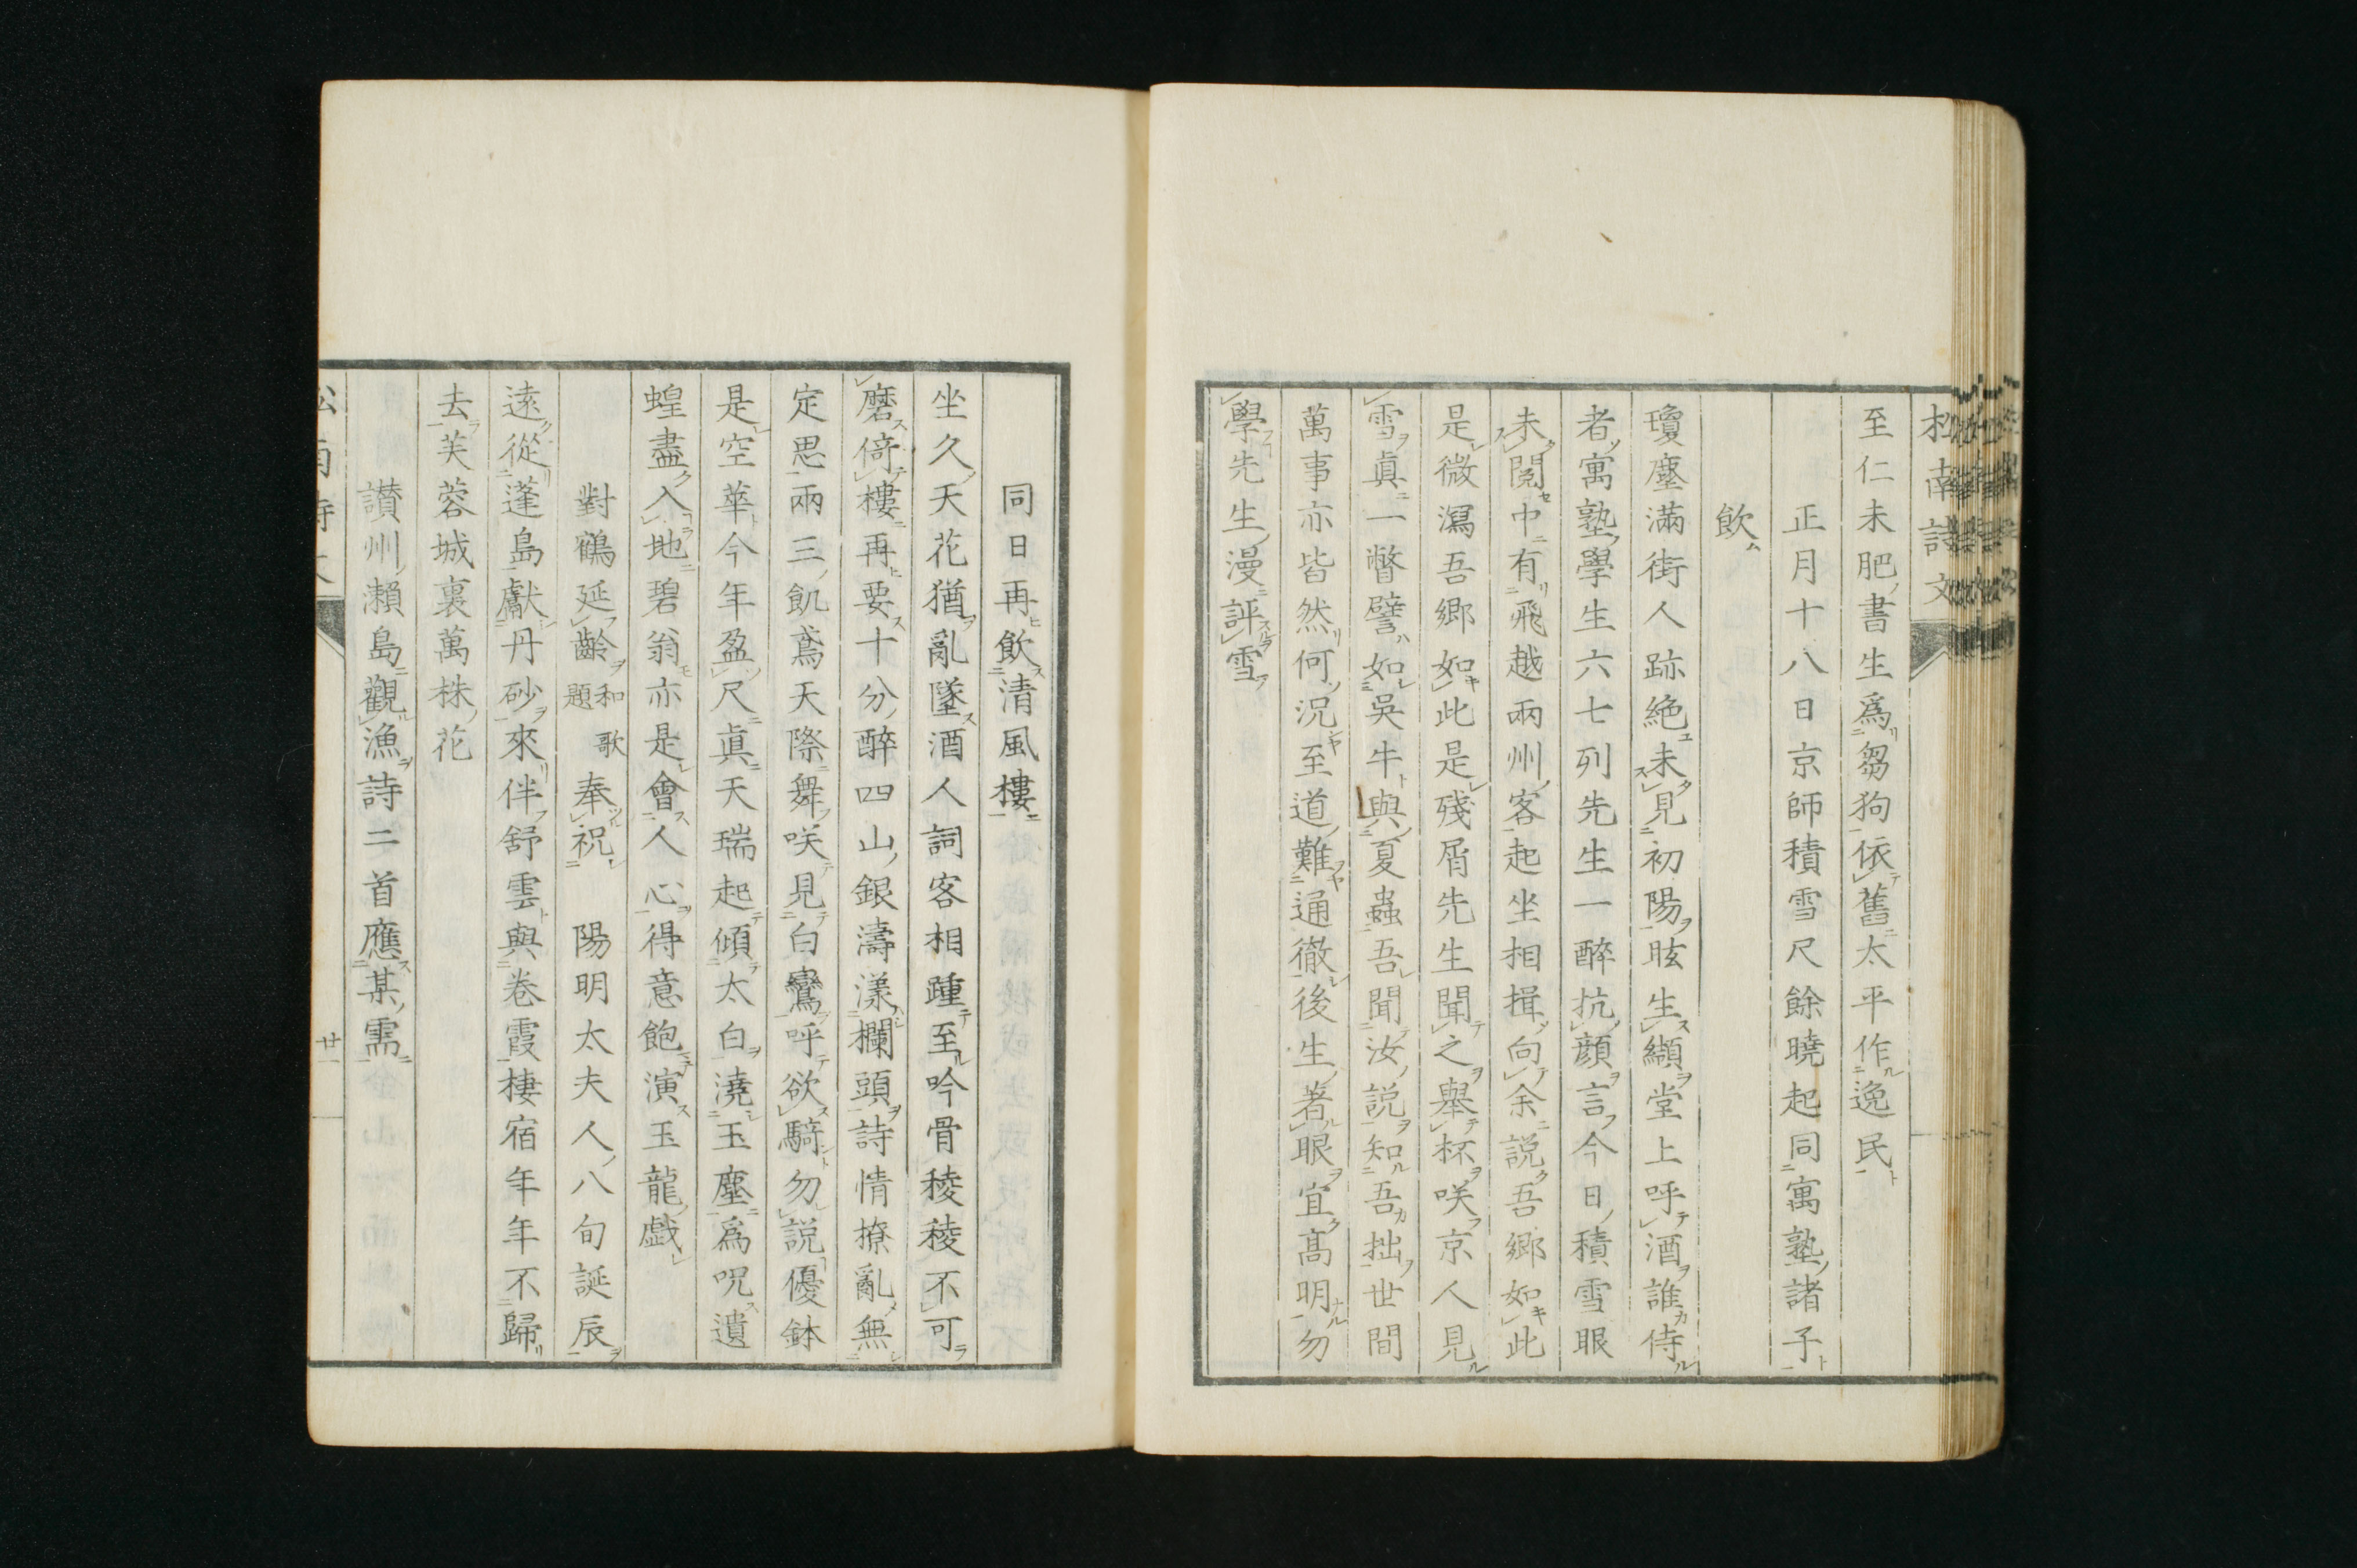 松南詩文
至仁未肥書生爲芻狗依舊太平作逸民
正月十八日京師積雪尺餘曉起同寓塾諸子
飲
瓊塵滿街人跡絶未見初陽眩生纈堂上呼酒誰侍
者寓塾學生六七列先生一醉抗顔言今日積雪眼
未閲中有飛越兩州客起坐相揖向余説吾郷如此
是微瀉吾郷如此是殘屑先生聞之舉杯咲京人見
雪眞一瞥譬如吳牛與夏蟲吾聞汝説知吾拙世間
萬事亦皆然何況至道難通徹後生著眼宜髙明勿
學先生漫評雪
同日再飲清風樓
坐久天花猶亂墜酒人詞客相踵至吟骨稜稜不可
磨倚樓再要十分醉四山銀濤漾欄頭詩情撩亂無
定思兩三飢鳶天際舞咲見白鸞呼欲騎勿説優鉢
是空華今年盈尺眞天瑞起傾太白澆玉塵爲呪遺
蝗盡入地碧翁亦是會人心得意飽演玉龍戯
對鶴延齡和歌題奉祝 陽明太夫人八旬誕辰
遠從蓬島獻丹砂來伴舒雲與卷霞棲宿年年不歸
去芙蓉城裏萬株花
讃州瀨島觀漁詩二首應某需
廿一